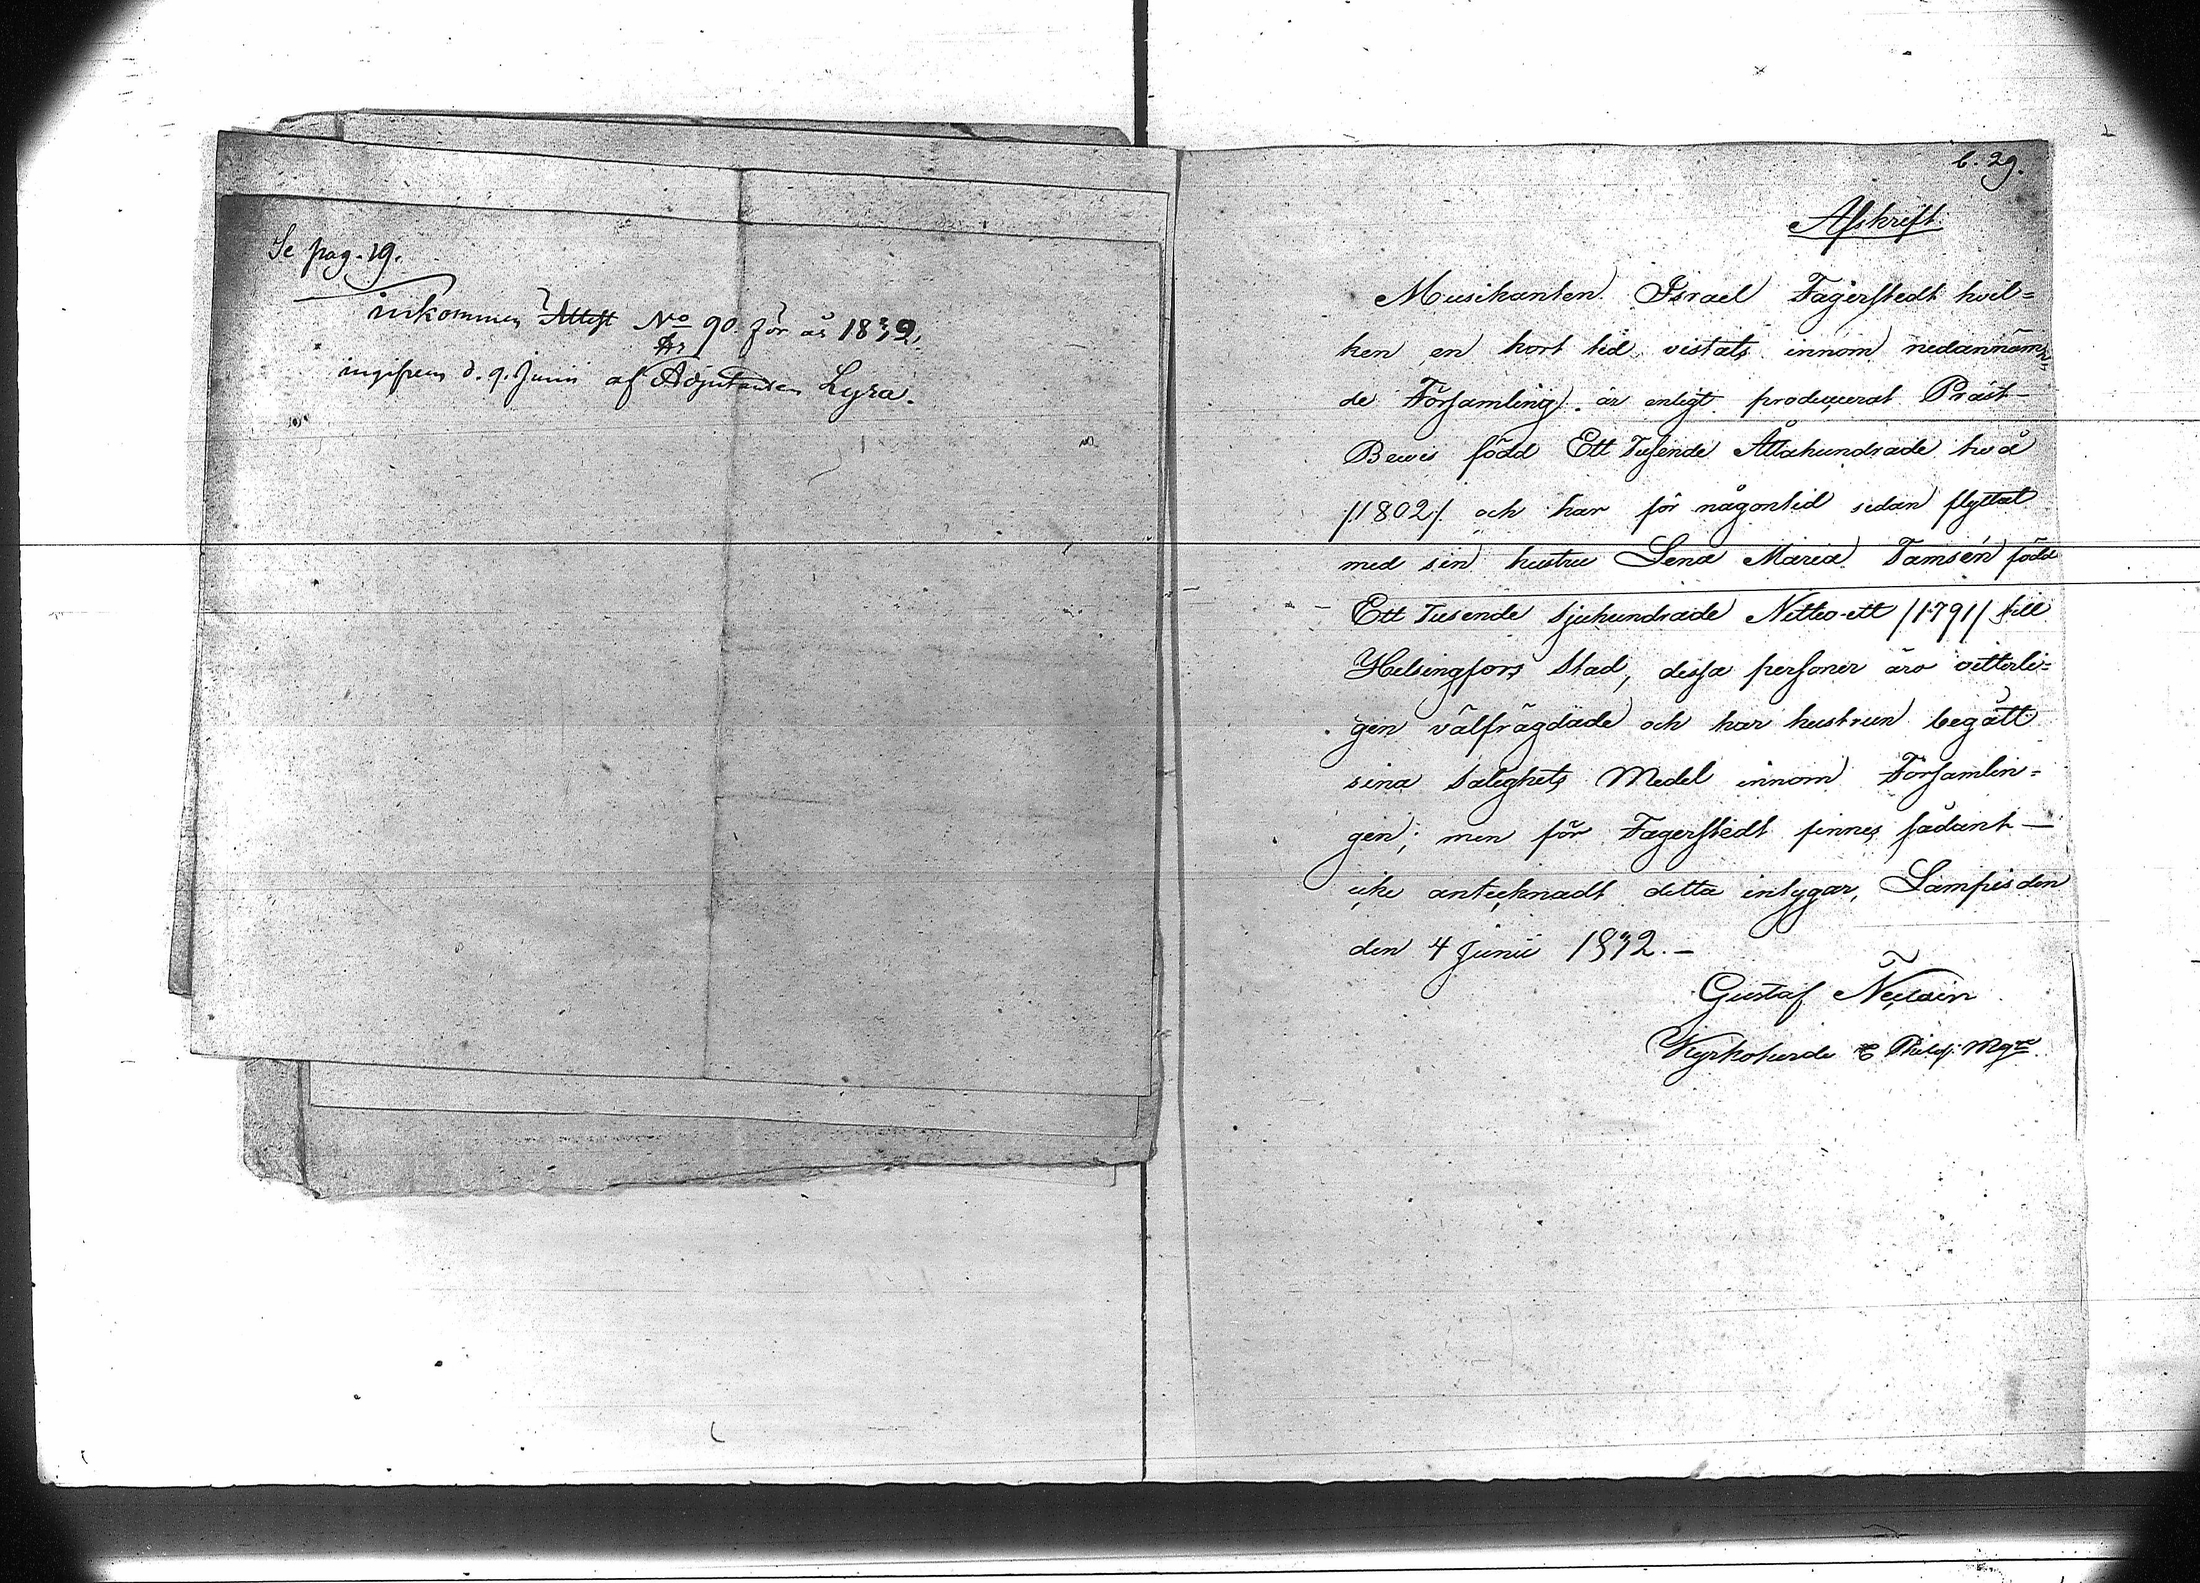 Se pag. 19.
inkommen Attest No 90 för år 1832,
ingifven d. 9. Junii af Adjutanten Lyra.
b. 29.
Afskrift
Musikanten Israel Fagerstedt hvil=
ken en kort tid vistats innom nedannämn
de Församling, är enligt producerat Präst-
Bewis född Ett Tusende Åttahundrade två
/1802/ och har för någontid sedan flyttat
med sin hustru Lena Maria Tamsén född
Ett Tusende Sjuhundrade Nittio-ett /1791/ till
Helsingfors Stad, dessa personer äro vitterli=
gen välfrägdade och har hustrun begått
sina Salighets Medel innom Församlin=
gen; men för Fagerstedt finnes sådant —
icke antecknadt detta intygar, Lampis den
den 4 Junii 1832. —
Gustaf
Kyrkoherde & Philos: Mgr